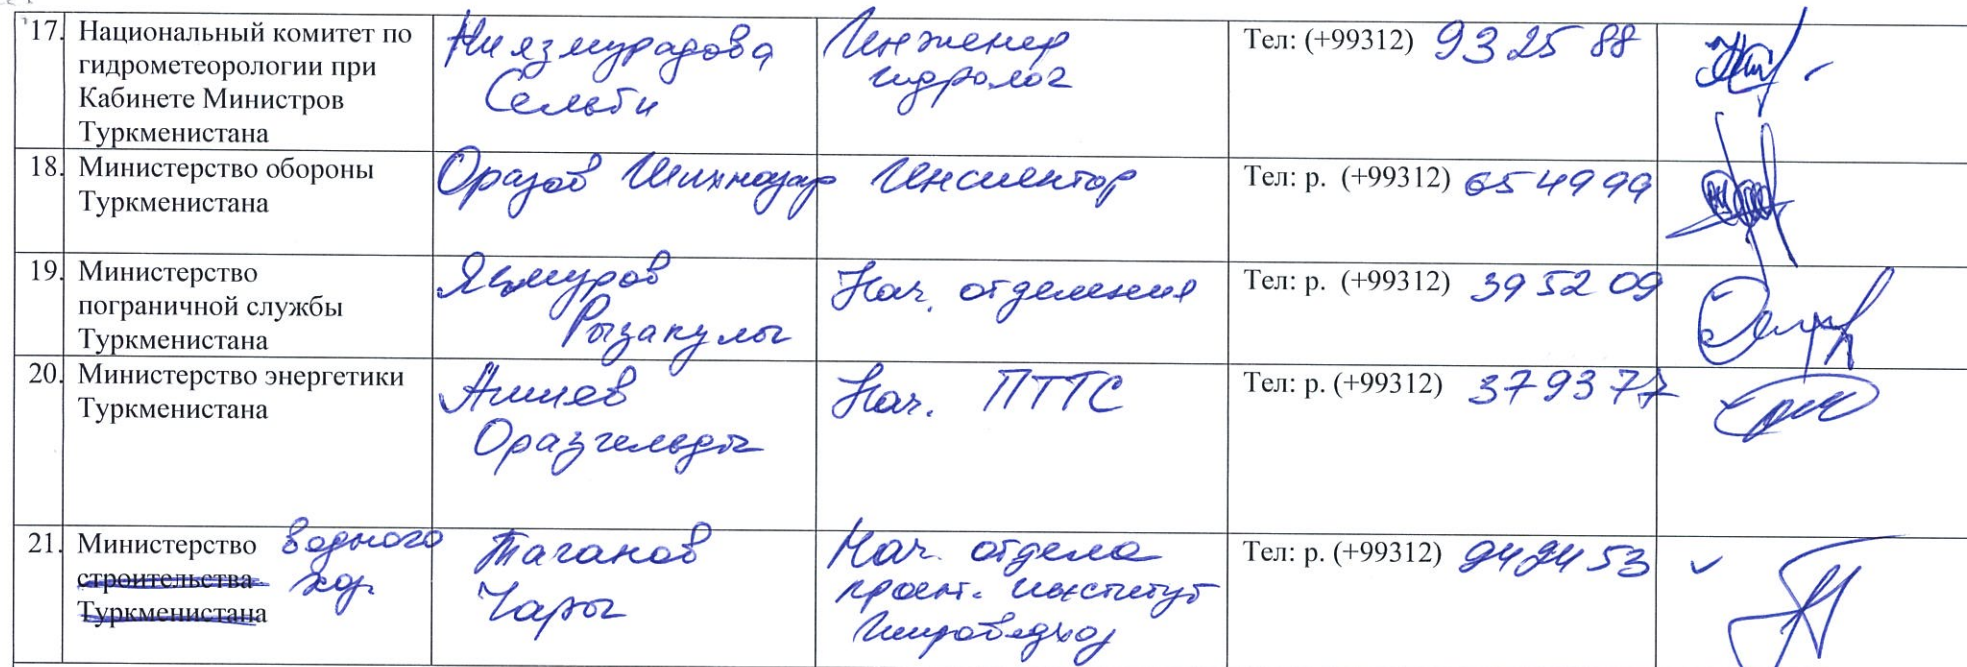 17. Национальный комитет по
гидрометеорологии при
Кабинете Министров
Туркменистана
Ниязмурадова
Сельби
Инженер
гидролог
Тел: (+99312) 93 25 88
18. Министерство обороны
Туркменистана
Оразов Шихназар
Инспектор
Тел: р. (+99312) 65 49 99
19. Министерство
пограничной службы
Туркменистана
Рызакулы
Нач. отделения
Тел: р. (+99312) 39 52 09
20. Министерство энергетики
Туркменистана
Оразгельды
Нач. ПТТС
Тел: р. (+99312) 37 93 77
21. Министерство водного
строительства хоз.
Туркменистана
Таганов
Чары
Нач. отдела
проект. институт
Тел: р. (+99312)